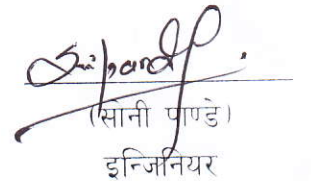 (सोनी पाण्डे)
इन्जिनियर